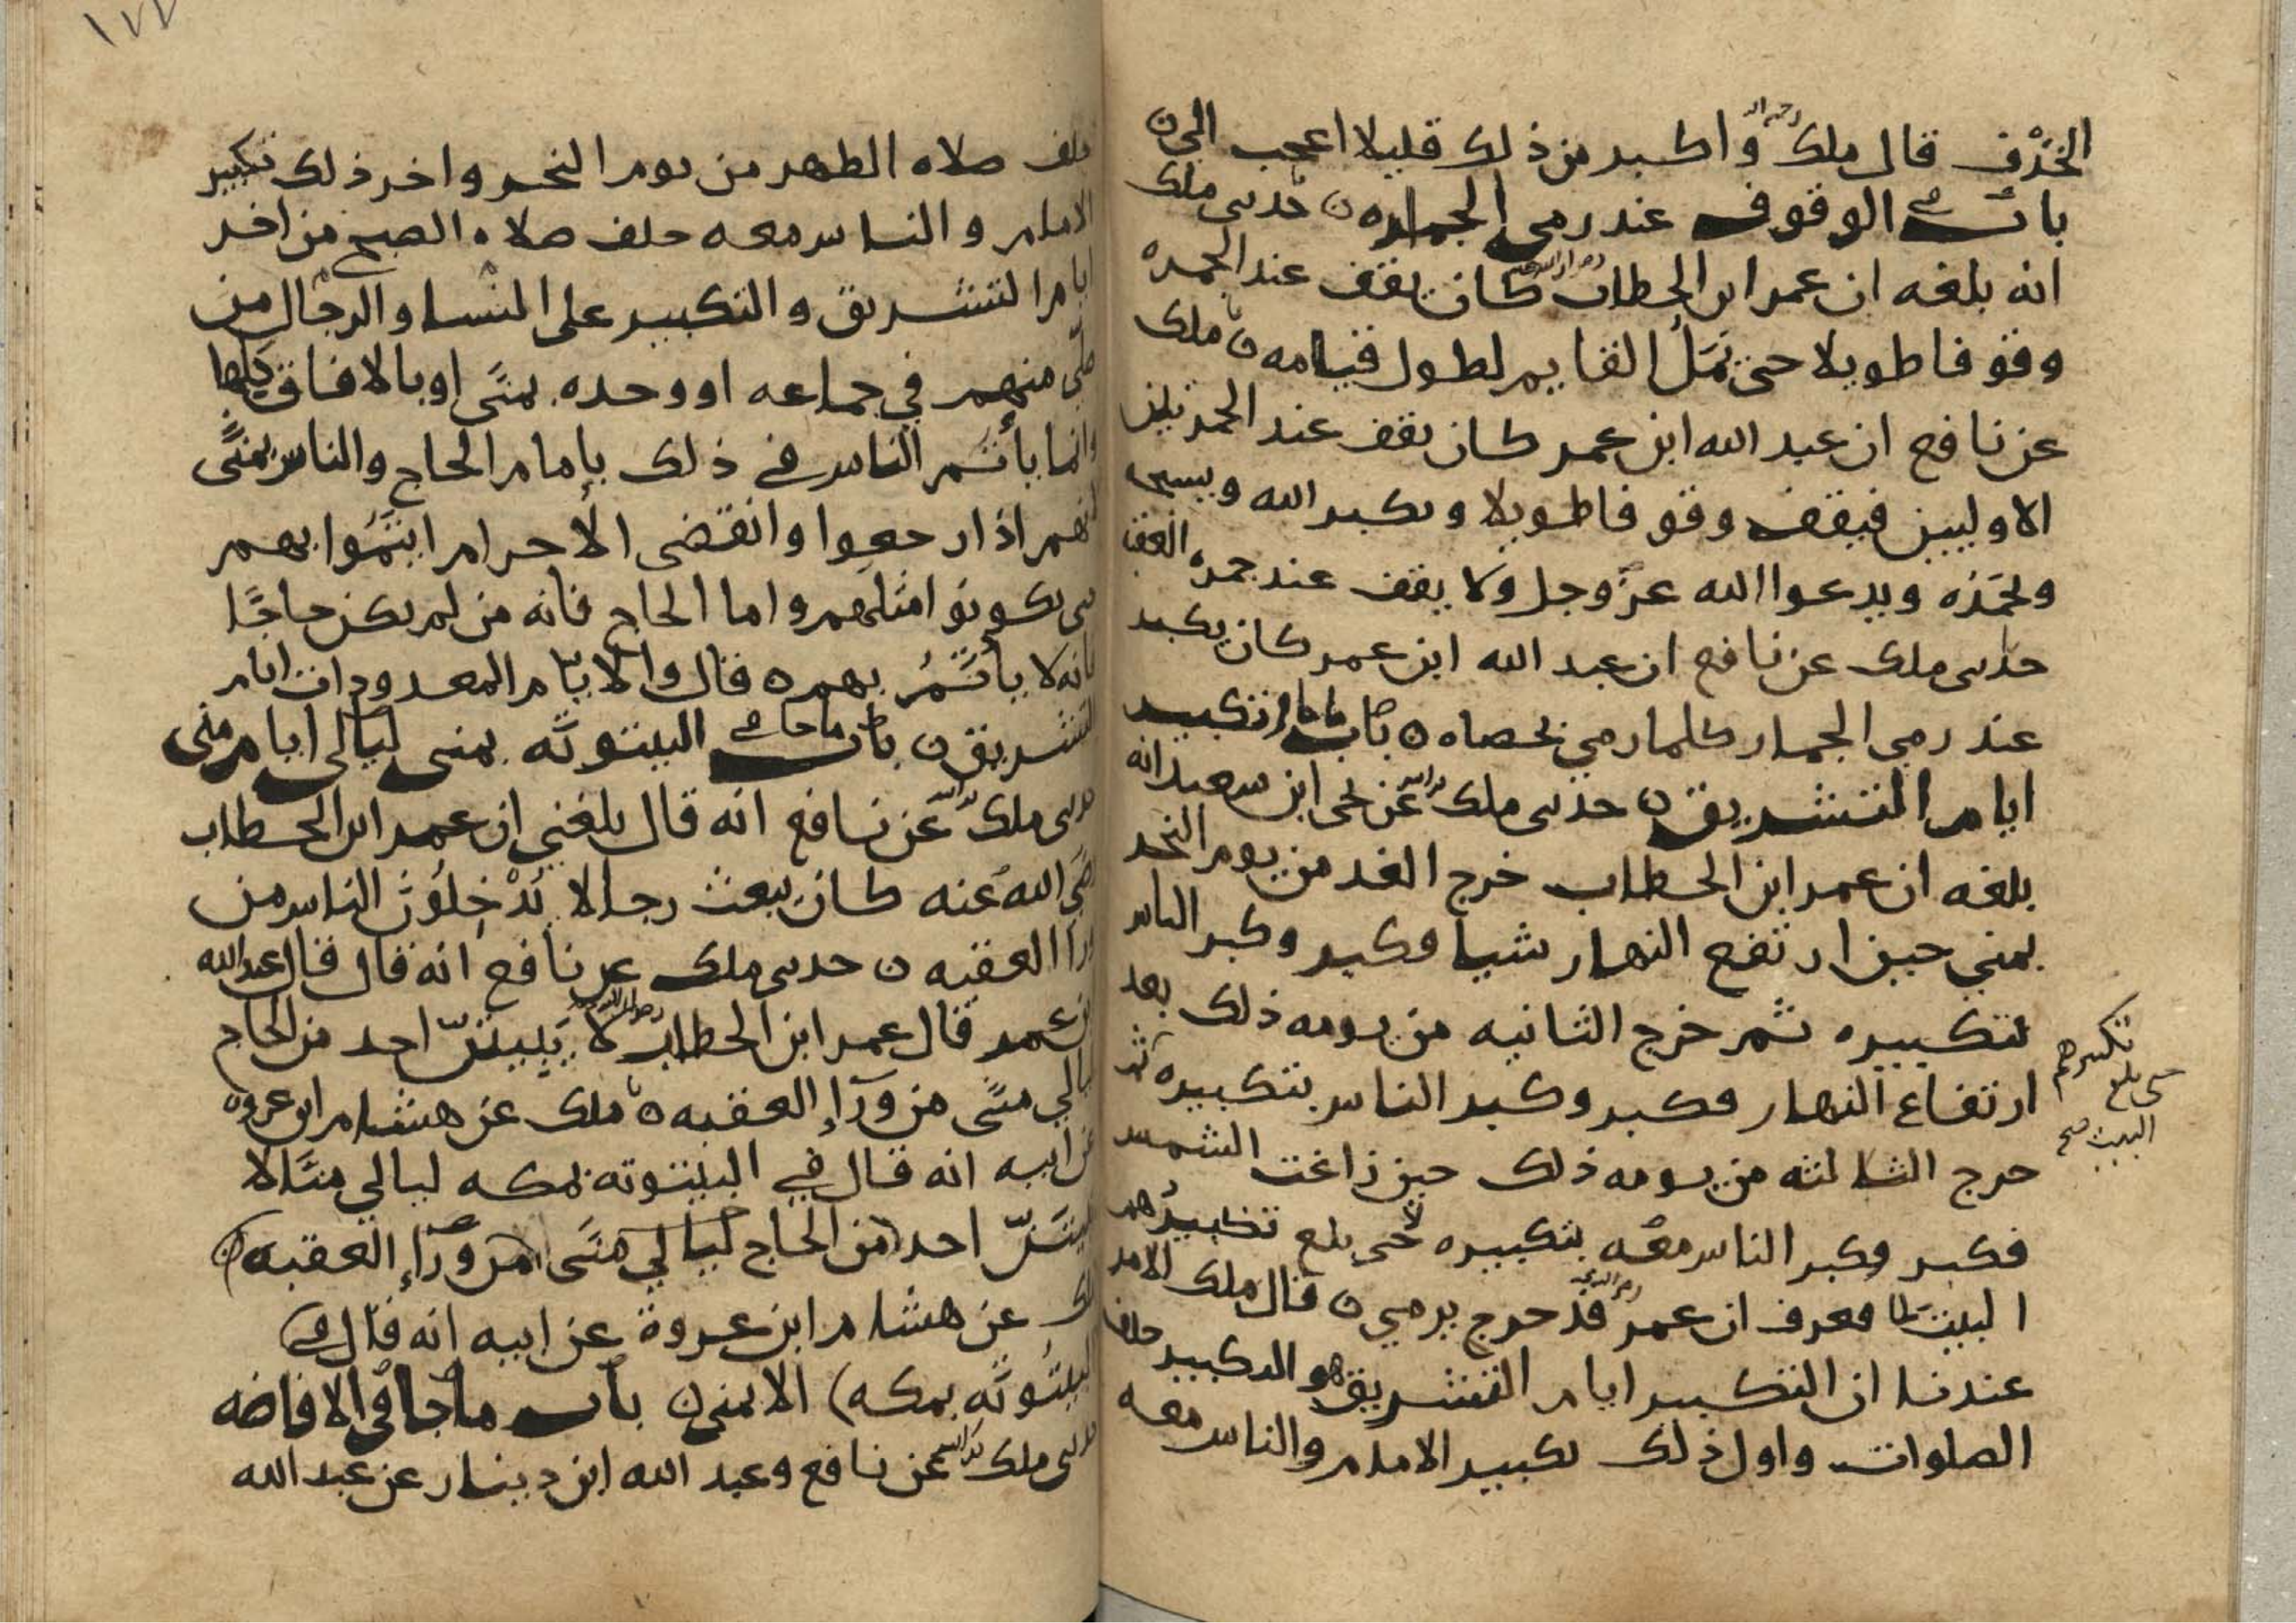 الخذف قال ملك رحمه الله واكبر من ذلك قليلا اعجب الي
باب في الوقوف عند رمي الجماره حدثني ملك
انه بلغه ان عمر ابن الخطاب كان يقف عند الجمره
وقوفا طويلا حتى تمل القايم لطول قيامه ملك
عن نافع ان عبد الله ابن عمر كان يقف عند الجمرتين
الاوليين فيقف وقوفا طويلا ويكبر الله ويسبحه
ويحمده ويدعوا الله عز وجل ولا يقف عند جمره العقبه
حدثني ملك عن نافع ان عبد الله ابن عمر كان يكبر
عند رمي الجمار كلما رمي بحصاه باب ما جا في تكبير
ايام التشريق حدثني ملك عن يحيى ابن سعيد انه
بلغه ان عمر ابن الخطاب خرج الغد من يوم النحر
بمني حين ارتفع النهار شيا فكبر وكبر الناس
بتكبيره ثم خرج الثانيه من يومه ذلك بعد
ارتفاع النهار فكبر وكبر الناس بتكبيره ثم
خرج الثالثه من يومه ذلك حين زاغت الشمس
فكبر وكبر الناس معه بتكبيره حتى بلغ تكبيرهم
البيت فعرف ان عمر قد خرج يرمي قال ملك الامر
عندنا ان التكبير ايام التشريق هو التكبير خلف
الصلوات واول ذلك تكبير الامام والناس معه
تكبيرهم
حتى بلغ
البيت صح
١٧٧
خلف صلاه الظهر من يوم النحر واخر ذلك تكبير
الامام والناس معه خلف صلاه الصبح من اخر
ايام التشريق والتكبير على النسا والرجال من
صلى منهم في جماعه او وحده بمنى او بالافاق كلها
وانما يأتم الناس في ذلك بإمام الحاج والناس بمنى
لانهم اذا رجعوا وانقضى الأحرام ايتموا بهم
حتى يكونوا مثلهم واما الحاج فانه من لم يكن حاجا
فانه لا يأتم بهم قال والايام المعدودات ايام
التشريق باب ما جا في البيتوته بمنى ليالي ايام منى
حدثني ملك عن نافع انه قال بلغني ان عمر ابن الخطاب
رضي الله عنه كان يبعث رجالا يدخلون الناس من
ورا العقبه حدثني ملك عن نافع انه قال قال عبد الله
بن عمر قال عمر ابن الخطاب لا يبيتن احد من الحاج
ليالي منى من ورآء العقبه ملك عن هشام ابن عروه
عن ابيه انه قال في البيتوته بمكه ليالي منى لا
يبيتن احد من الحاج ليالي منى من ورآء العقبه
ملك عن هشام ابن عروة عن ابيه انه قال في
البيتوته بمكه الا بمنى باب ما جا في الافاضه
حدثني ملك عن نافع وعبد الله ابن دينار عن عبد الله